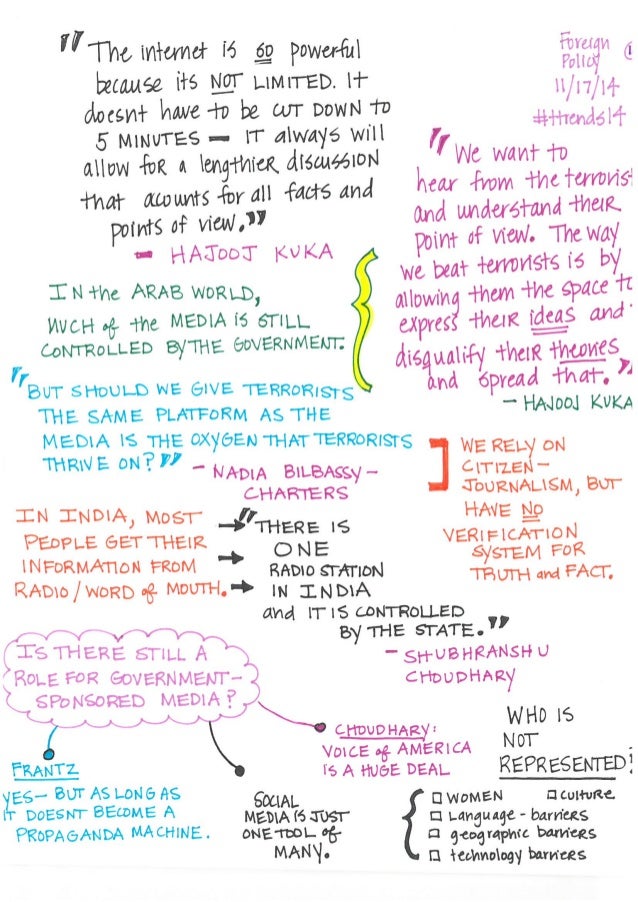 "The internet is so powerful
because its NOT LIMITED. It
doesnt have to be CUT DOWN TO
5 MINUTES — IT always will
allow for a lengthier discussion
that acounts for all facts and
points of view."
- HAJOOJ KUKA
Foreign
Policy
11/17/14
#ttrends14
"We want to
hear from the terrorist
and understand their
point of view. The way
we beat terrorists is by
allowing them the space to
express their ideas and
disqualify their theories
and spread that."
- HAJOOJ KUKA
IN the ARAB WORLD,
MUCH of the MEDIA IS STILL
CONTROLLED BY THE GOVERNMENT.
"BUT SHOULD WE GIVE TERRORISTS
THE SAME PLATFORM AS THE
MEDIA IS THE OXYGEN THAT TERRORISTS
THRIVE ON?"
- NADIA BILBASSY-
CHARTERS
WE RELY ON
CITIZEN-
JOURNALISM, BUT
HAVE NO
VERIFICATION
SYSTEM FOR
TRUTH and FACT.
IN INDIA, MOST
PEOPLE GET THEIR
INFORMATION FROM
RADIO/WORD of MOUTH.
"THERE IS
ONE
RADIO STATION
IN INDIA
and IT IS CONTROLLED
BY THE STATE."
- SHUBHRANSHU
CHOUDHARY
IS THERE STILL A
ROLE FOR GOVERNMENT-
SPONSORED MEDIA?
FRANTZ
YES- BUT AS LONG AS
IT DOESNT BECOME A
PROPAGANDA MACHINE.
SOCIAL
MEDIA IS JUST
ONE TOOL of
MANY.
CHOUDHARY:
VOICE of AMERICA
IS A HUGE DEAL
WHO IS
NOT
REPRESENTED?
WOMEN
CULTURE
Language-barriers
geographic barriers
technology barriers